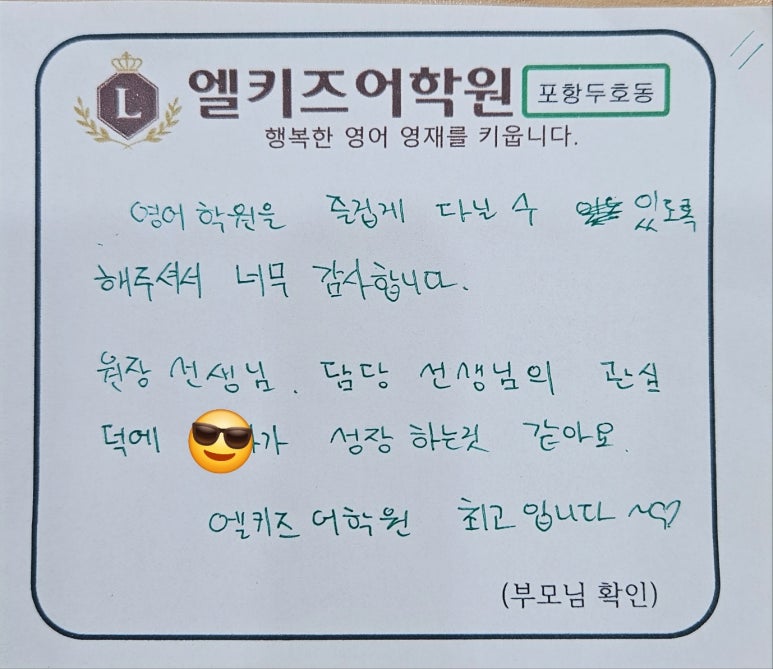 L
엘키즈어학원 포항두호동
행복한 영어 영재를 키웁니다.
영어 학원을 즐겁게 다닐 수 있도록
해주셔서 너무 감사합니다.
원장 선생님. 담당 선생님의 관심
덕에 가 성장 하는것 같아요.
엘키즈 어학원 최고 입니다 ~♡
(부모님 확인)